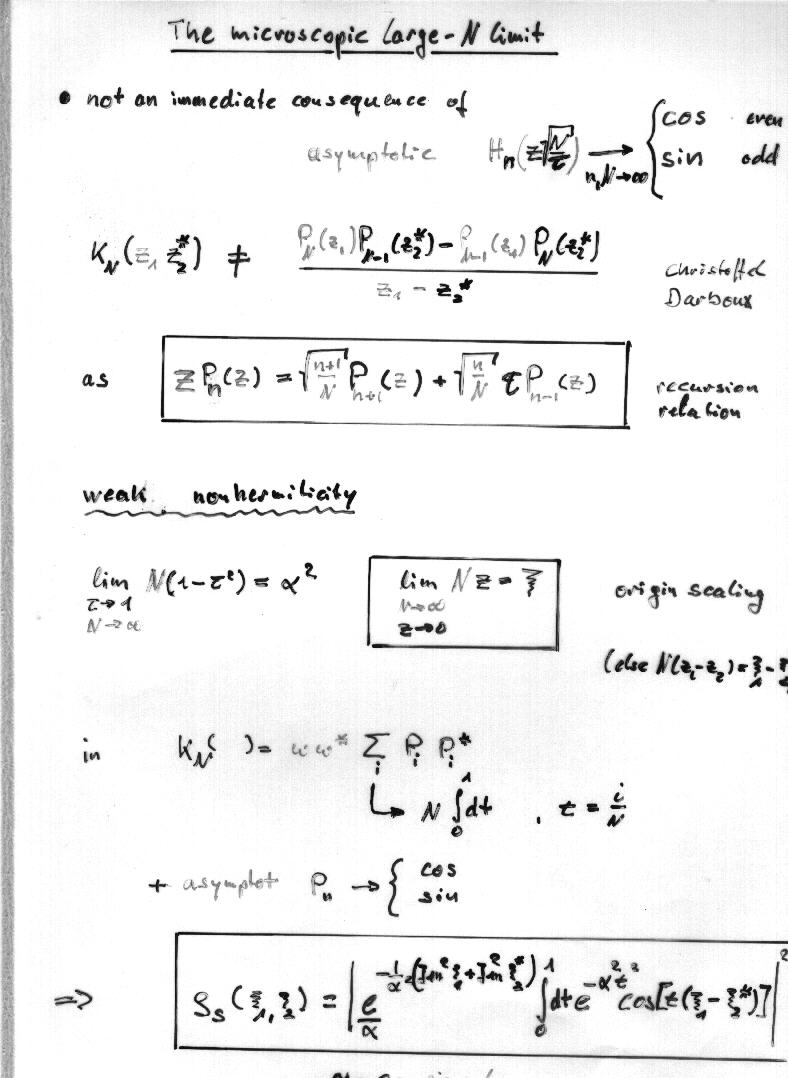 The microscopic large-N limit
• not an immediate consequence of
asymptotic H_n(z√(N/τ)) → n,N→∞ { cos even
sin odd
K_N(z_1 z_2^*) ≠ (P_N(z_1)P_{N-1}(z_2^*) - P_{N-1}(z_1)P_N(z_2^*)) / (z_1 - z_2^*) Christoffel
Darboux
as z P_n(z) = √((n+1)/N) P_{n+1}(z) + √(n/N) τ P_{n-1}(z) recursion
relation
weak nonhermiticity
lim N(1-τ²) = α² lim N z = ξ origin scaling
τ→1 N→∞
N→∞ z→0
(else N(z_1-z_2) = ξ_1 - ξ
in K_N( ) = w w* Σ_i P_i P_i^*
↳ N ∫_0^1 dt , t = i/N
+ asymptot P_n → { cos
sin
=> ρ_s(ξ_1, ξ_2) = | e^{-1/α² (Im² ξ_1 + Im² ξ_2^*)} / α ∫_0^1 dt e^{-α² t²} cos[t(ξ_1 - ξ_2^*)] |²